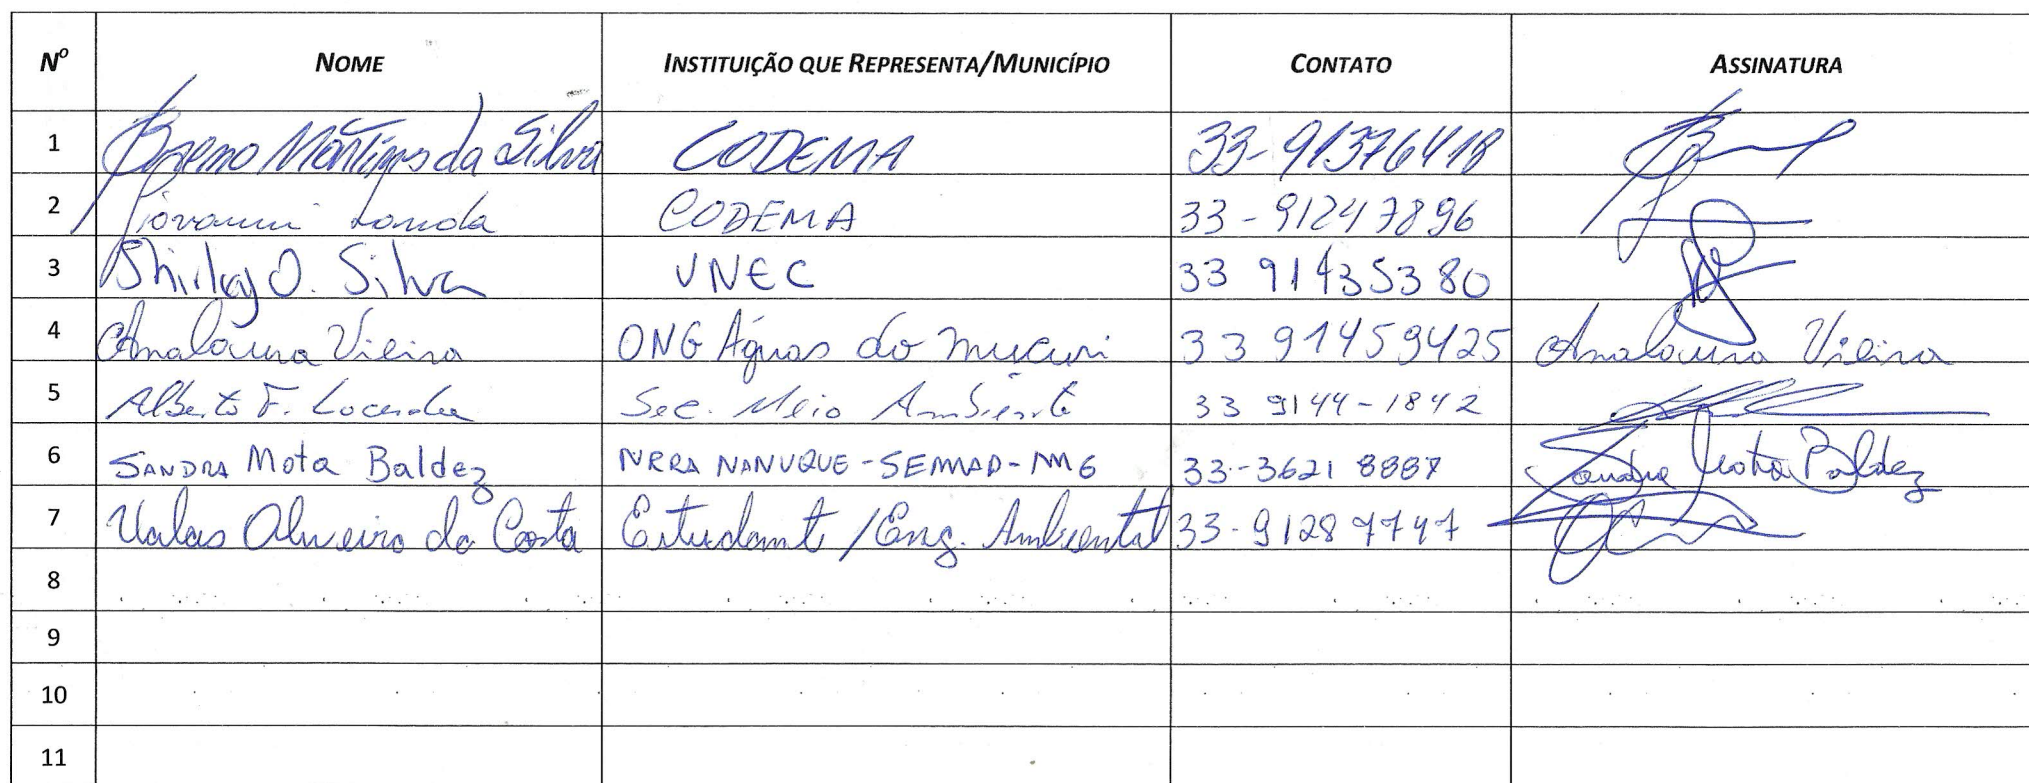 Nº NOME INSTITUIÇÃO QUE REPRESENTA/MUNICÍPIO CONTATO ASSINATURA
1 Breno Martins da Silva CODEMA 33-91376418
2 Giovanni CODEMA 33-91247896
3 Shirley O. Silva UNEC 33 91435380
4 Analaura Vieira ONG Águas do Mucuri 33 91459425 Analaura Vieira
5 Alberto F. Lacerda Sec. Meio Ambiente 33 9144-1842
6 SANDRA Mota Baldez NRRA NANUQUE-SEMAD-MG 33-3621 8887 Sandra Mota Baldez
7 da Costa Estudante/Eng. Ambiental 33-91287747
8
9
10
11